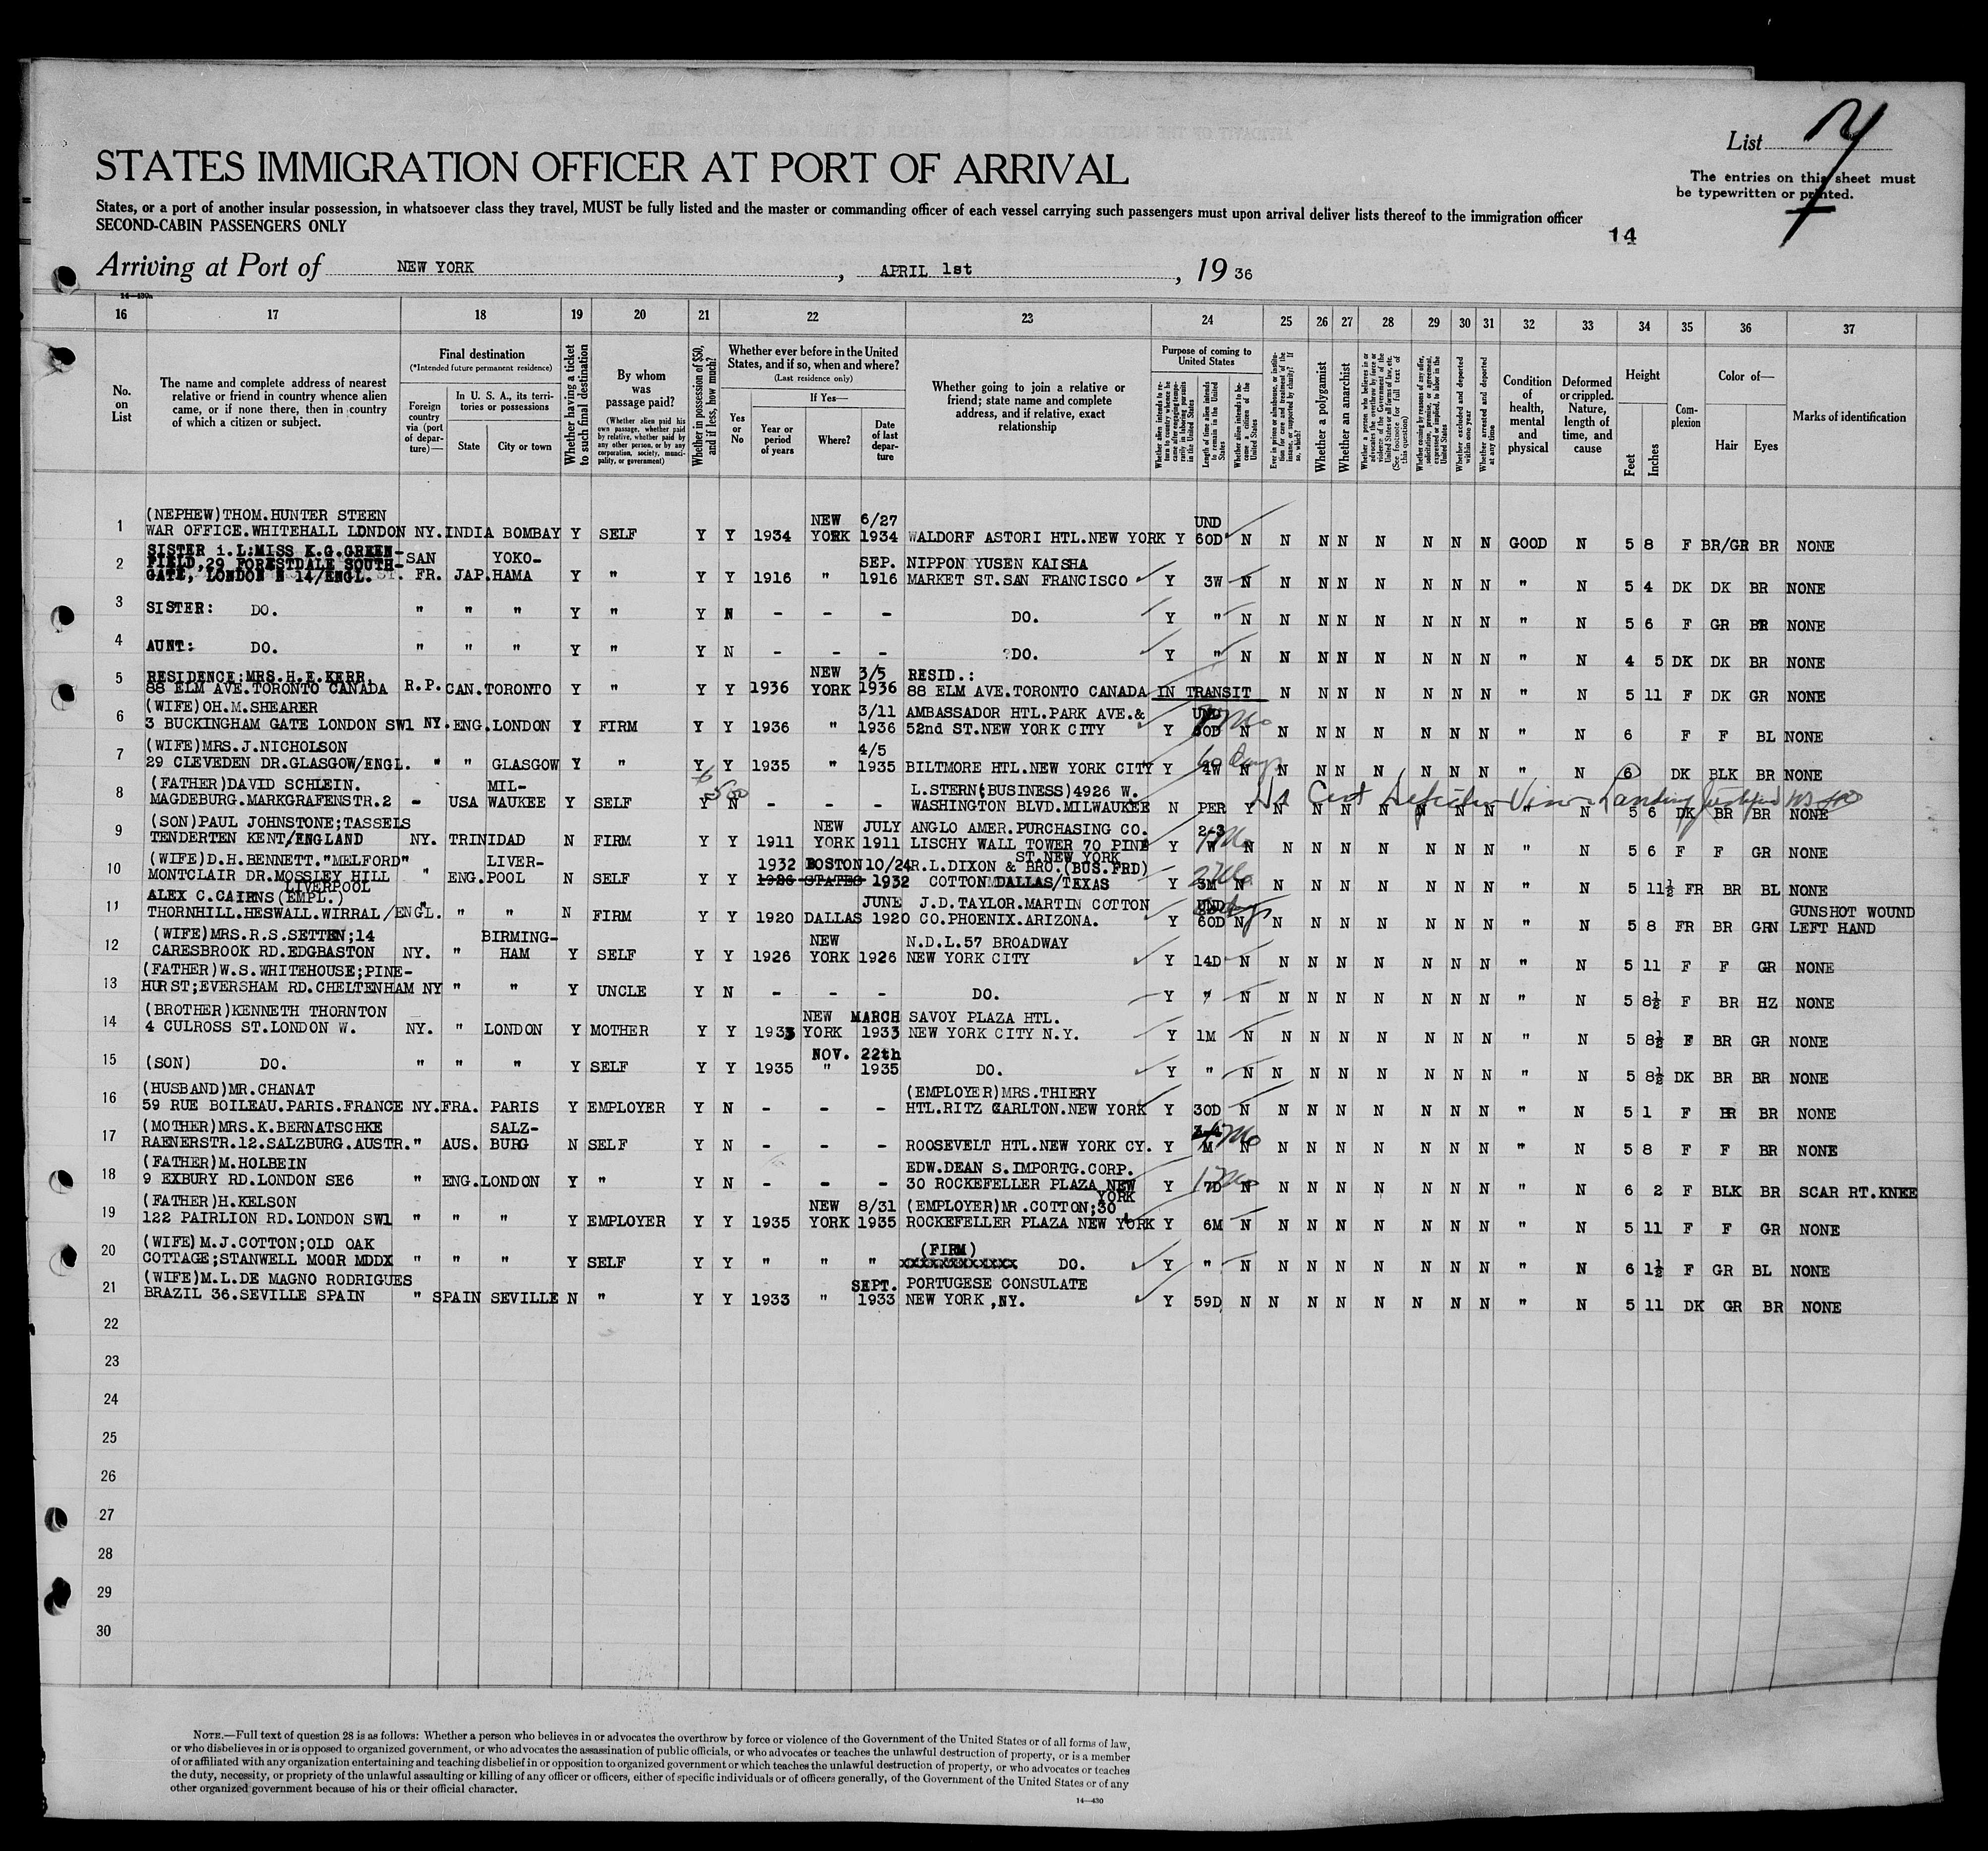 List
The entries on this sheet must
be typewritten or printed.
STATES IMMIGRATION OFFICER AT PORT OF ARRIVAL
States, or a port of another insular possession, in whatsoever class they travel, MUST be fully listed and the master or commanding officer of each vessel carrying such passengers must upon arrival deliver lists thereof to the immigration officer
SECOND-CABIN PASSENGERS ONLY
14
Arriving at Port of NEW YORK , APRIL 1st , 19 36
14—430a
16 17 18 19 20 21 22 23 24 25 26 27 28 29 30 31 32 33 34 35 36 37
No. on List
The name and complete address of nearest relative or friend in country whence alien came, or if none there, then in country of which a citizen or subject.
Final destination
(*Intended future permanent residence)
Foreign country via (port of departure)—
In U. S. A., its territories or possessions
State
City or town
Whether having a ticket to such final destination
By whom was passage paid?
(Whether alien paid his own passage, whether paid by relative, whether paid by any other person, or by any corporation, society, municipality, or government)
Whether in possession of $50, and if less, how much?
Whether ever before in the United States, and if so, when and where?
(Last residence only)
Yes or No
If Yes—
Year or period of years
Where?
Date of last departure
Whether going to join a relative or friend; state name and complete address, and if relative, exact relationship
Purpose of coming to United States
Whether alien intends to return to country whence he came after engaging temporarily in laboring pursuits in the United States
Length of time alien intends to remain in the United States
Whether alien intends to become a citizen of the United States
Ever in prison or almshouse, or institution for care and treatment of the insane, or supported by charity? If so, which?
Whether a polygamist
Whether an anarchist
Whether a person who believes in or advocates the overthrow by force or violence of the Government of the United States or all forms of law, etc. (See footnote for full text of this question)
Whether coming by reasons of any offer, solicitation, promise, or agreement, expressed or implied, to labor in the United States
Whether excluded and deported within one year
Whether arrested and deported at any time
Condition of health, mental and physical
Deformed or crippled. Nature, length of time, and cause
Height
Feet
Inches
Complexion
Color of—
Hair
Eyes
Marks of identification
1 (NEPHEW)THOM.HUNTER STEEN NEW 6/27 UND
WAR OFFICE.WHITEHALL LONDON NY. INDIA BOMBAY Y SELF Y Y 1934 YORK 1934 WALDORF ASTORI HTL.NEW YORK Y 60D N N N N N N N N GOOD N 5 8 F BR/GR BR NONE
2 SISTER i.L:MISS K.G.GREEN- SAN YOKO- SEP. NIPPON YUSEN KAISHA
FIELD,29 FORESTDALE SOUTH-
GATE, LONDON N 14/ENGL. FR. JAP. HAMA Y " Y Y 1916 " 1916 MARKET ST.SAN FRANCISCO Y 3W N N N N N N N N " N 5 4 DK DK BR NONE
3 SISTER: DO. " " " Y " Y N - - - DO. Y " N N N N N N N N " N 5 6 F GR BR NONE
4 AUNT: DO. " " " Y " Y N - - - DO. Y " N N N N N N N N " N 4 5 DK DK BR NONE
5 RESIDENCE:MRS.H.E.KERR NEW 3/5 RESID.:
88 ELM AVE.TORONTO CANADA R.P. CAN. TORONTO Y " Y Y 1936 YORK 1936 88 ELM AVE.TORONTO CANADA IN TRANSIT N N N N N N N " N 5 11 F DK GR NONE
6 (WIFE)OH.M.SHEARER 3/11 AMBASSADOR HTL.PARK AVE.& UND
3 BUCKINGHAM GATE LONDON SW1 NY. ENG. LONDON Y FIRM Y Y 1936 " 1936 52nd ST.NEW YORK CITY Y 60D N N N N N N N N " N 6 F F BL NONE
7 (WIFE)MRS.J.NICHOLSON 4/5 60 Days
29 CLEVEDEN DR.GLASGOW/ENGL. " " GLASGOW Y " Y Y 1935 " 1935 BILTMORE HTL.NEW YORK CITY Y 4W N N N N N N N N " N 6 DK BLK BR NONE
8 (FATHER)DAVID SCHLEIN. MIL- 500 L.STERN(BUSINESS)4926 W.
MAGDEBURG.MARKGRAFENSTR.2 - USA WAUKEE Y SELF Y N - - - WASHINGTON BLVD.MILWAUKEE N PER Y N N N N N N N " N 5 6 DK BR BR NONE
9 (SON)PAUL JOHNSTONE;TASSELS NEW JULY ANGLO AMER.PURCHASING CO. 2-3
TENDERTEN KENT/ENGLAND NY. TRINIDAD N FIRM Y Y 1911 YORK 1911 LISCHY WALL TOWER 70 PINE Y W N N N N N N N N " N 5 6 F F GR NONE
ST.NEW YORK
10 (WIFE)D.H.BENNETT."MELFORD" LIVER- 1932 BOSTON 10/24 R.L.DIXON & BRO.(BUS.FRD)
MONTCLAIR DR.MOSSLEY HILL " ENG. POOL N SELF Y Y 1926 STATES 1932 COTTON DALLAS/TEXAS Y 3M N N N N N N N N " N 5 11½ FR BR BL NONE
LIVERPOOL
11 ALEX C.CAIRNS(EMPL.) JUNE J.D.TAYLOR.MARTIN COTTON UND GUNSHOT WOUND
THORNHILL.HESWALL.WIRRAL/ENGL. " " " N FIRM Y Y 1920 DALLAS 1920 CO.PHOENIX.ARIZONA. Y 60D N N N N N N N N " N 5 8 FR BR GRN LEFT HAND
12 (WIFE)MRS.R.S.SETTEN;14 BIRMING- NEW N.D.L.57 BROADWAY
CARESBROOK RD.EDGBASTON NY. " HAM Y SELF Y Y 1926 YORK 1926 NEW YORK CITY Y 14D N N N N N N N N " N 5 11 F F GR NONE
13 (FATHER)W.S.WHITEHOUSE;PINE-
HURST;EVERSHAM RD.CHELTENHAM NY " " Y UNCLE Y N - - - DO. Y " N N N N N N N N " N 5 8½ F BR HZ NONE
14 (BROTHER)KENNETH THORNTON NEW MARCH SAVOY PLAZA HTL.
4 CULROSS ST.LONDON W. NY. " LONDON Y MOTHER Y Y 1933 YORK 1933 NEW YORK CITY N.Y. Y 1M N N N N N N N N " N 5 8½ F BR GR NONE
15 NOV. 22th
(SON) DO. " " " Y SELF Y Y 1935 " 1935 DO. Y " N N N N N N N N " N 5 8½ DK BR BR NONE
16 (HUSBAND)MR.CHANAT (EMPLOYER)MRS.THIERY
59 RUE BOILEAU.PARIS.FRANCE NY. FRA. PARIS Y EMPLOYER Y N - - - HTL.RITZ CARLTON.NEW YORK Y 30D N N N N N N N N " N 5 1 F BR BR NONE
17 (MOTHER)MRS.K.BERNATSCHKE SALZ-
RAENERSTR.12.SALZBURG.AUSTR. " AUS. BURG N SELF Y N - - - ROOSEVELT HTL.NEW YORK CY. Y M N N N N N N N N " N 5 8 F F BR NONE
18 (FATHER)M.HOLBEIN EDW.DEAN S.IMPORTG.CORP.
9 EXBURY RD.LONDON SE6 " ENG. LONDON Y " Y N - - - 30 ROCKEFELLER PLAZA NEW Y 7D N N N N N N N N " N 6 2 F BLK BR SCAR RT.KNEE
YORK
19 (FATHER)H.KELSON NEW 8/31 (EMPLOYER)MR.COTTON;30
122 PAIRLION RD.LONDON SW1 " " " Y EMPLOYER Y Y 1935 YORK 1935 ROCKEFELLER PLAZA NEW YORK Y 6M N N N N N N N N " N 5 11 F F GR NONE
20 (WIFE)M.J.COTTON;OLD OAK (FIRM)
COTTAGE;STANWELL MOOR MDDX " " " Y SELF Y Y " " " xxxxxxxxxxxxx DO. Y " N N N N N N N N " N 6 1½ F GR BL NONE
21 (WIFE)M.L.DE MAGNO RODRIGUES SEPT. PORTUGESE CONSULATE
BRAZIL 36.SEVILLE SPAIN " SPAIN SEVILLE N " Y Y 1933 " 1933 NEW YORK,NY. Y 59D N N N N N N N N " N 5 11 DK GR BR NONE
22
23
24
25
26
27
28
29
30
NOTE.—Full text of question 28 is as follows: Whether a person who believes in or advocates the overthrow by force or violence of the Government of the United States or of all forms of law,
or who disbelieves in or is opposed to organized government, or who advocates the assassination of public officials, or who advocates or teaches the unlawful destruction of property, or is a member
of or affiliated with any organization entertaining and teaching disbelief in or opposition to organized government or which teaches the unlawful destruction of property, or who advocates or teaches
the duty, necessity, or propriety of the unlawful assaulting or killing of any officer or officers, either of specific individuals or of officers generally, of the Government of the United States or of any
other organized government because of his or their official character.
14—430